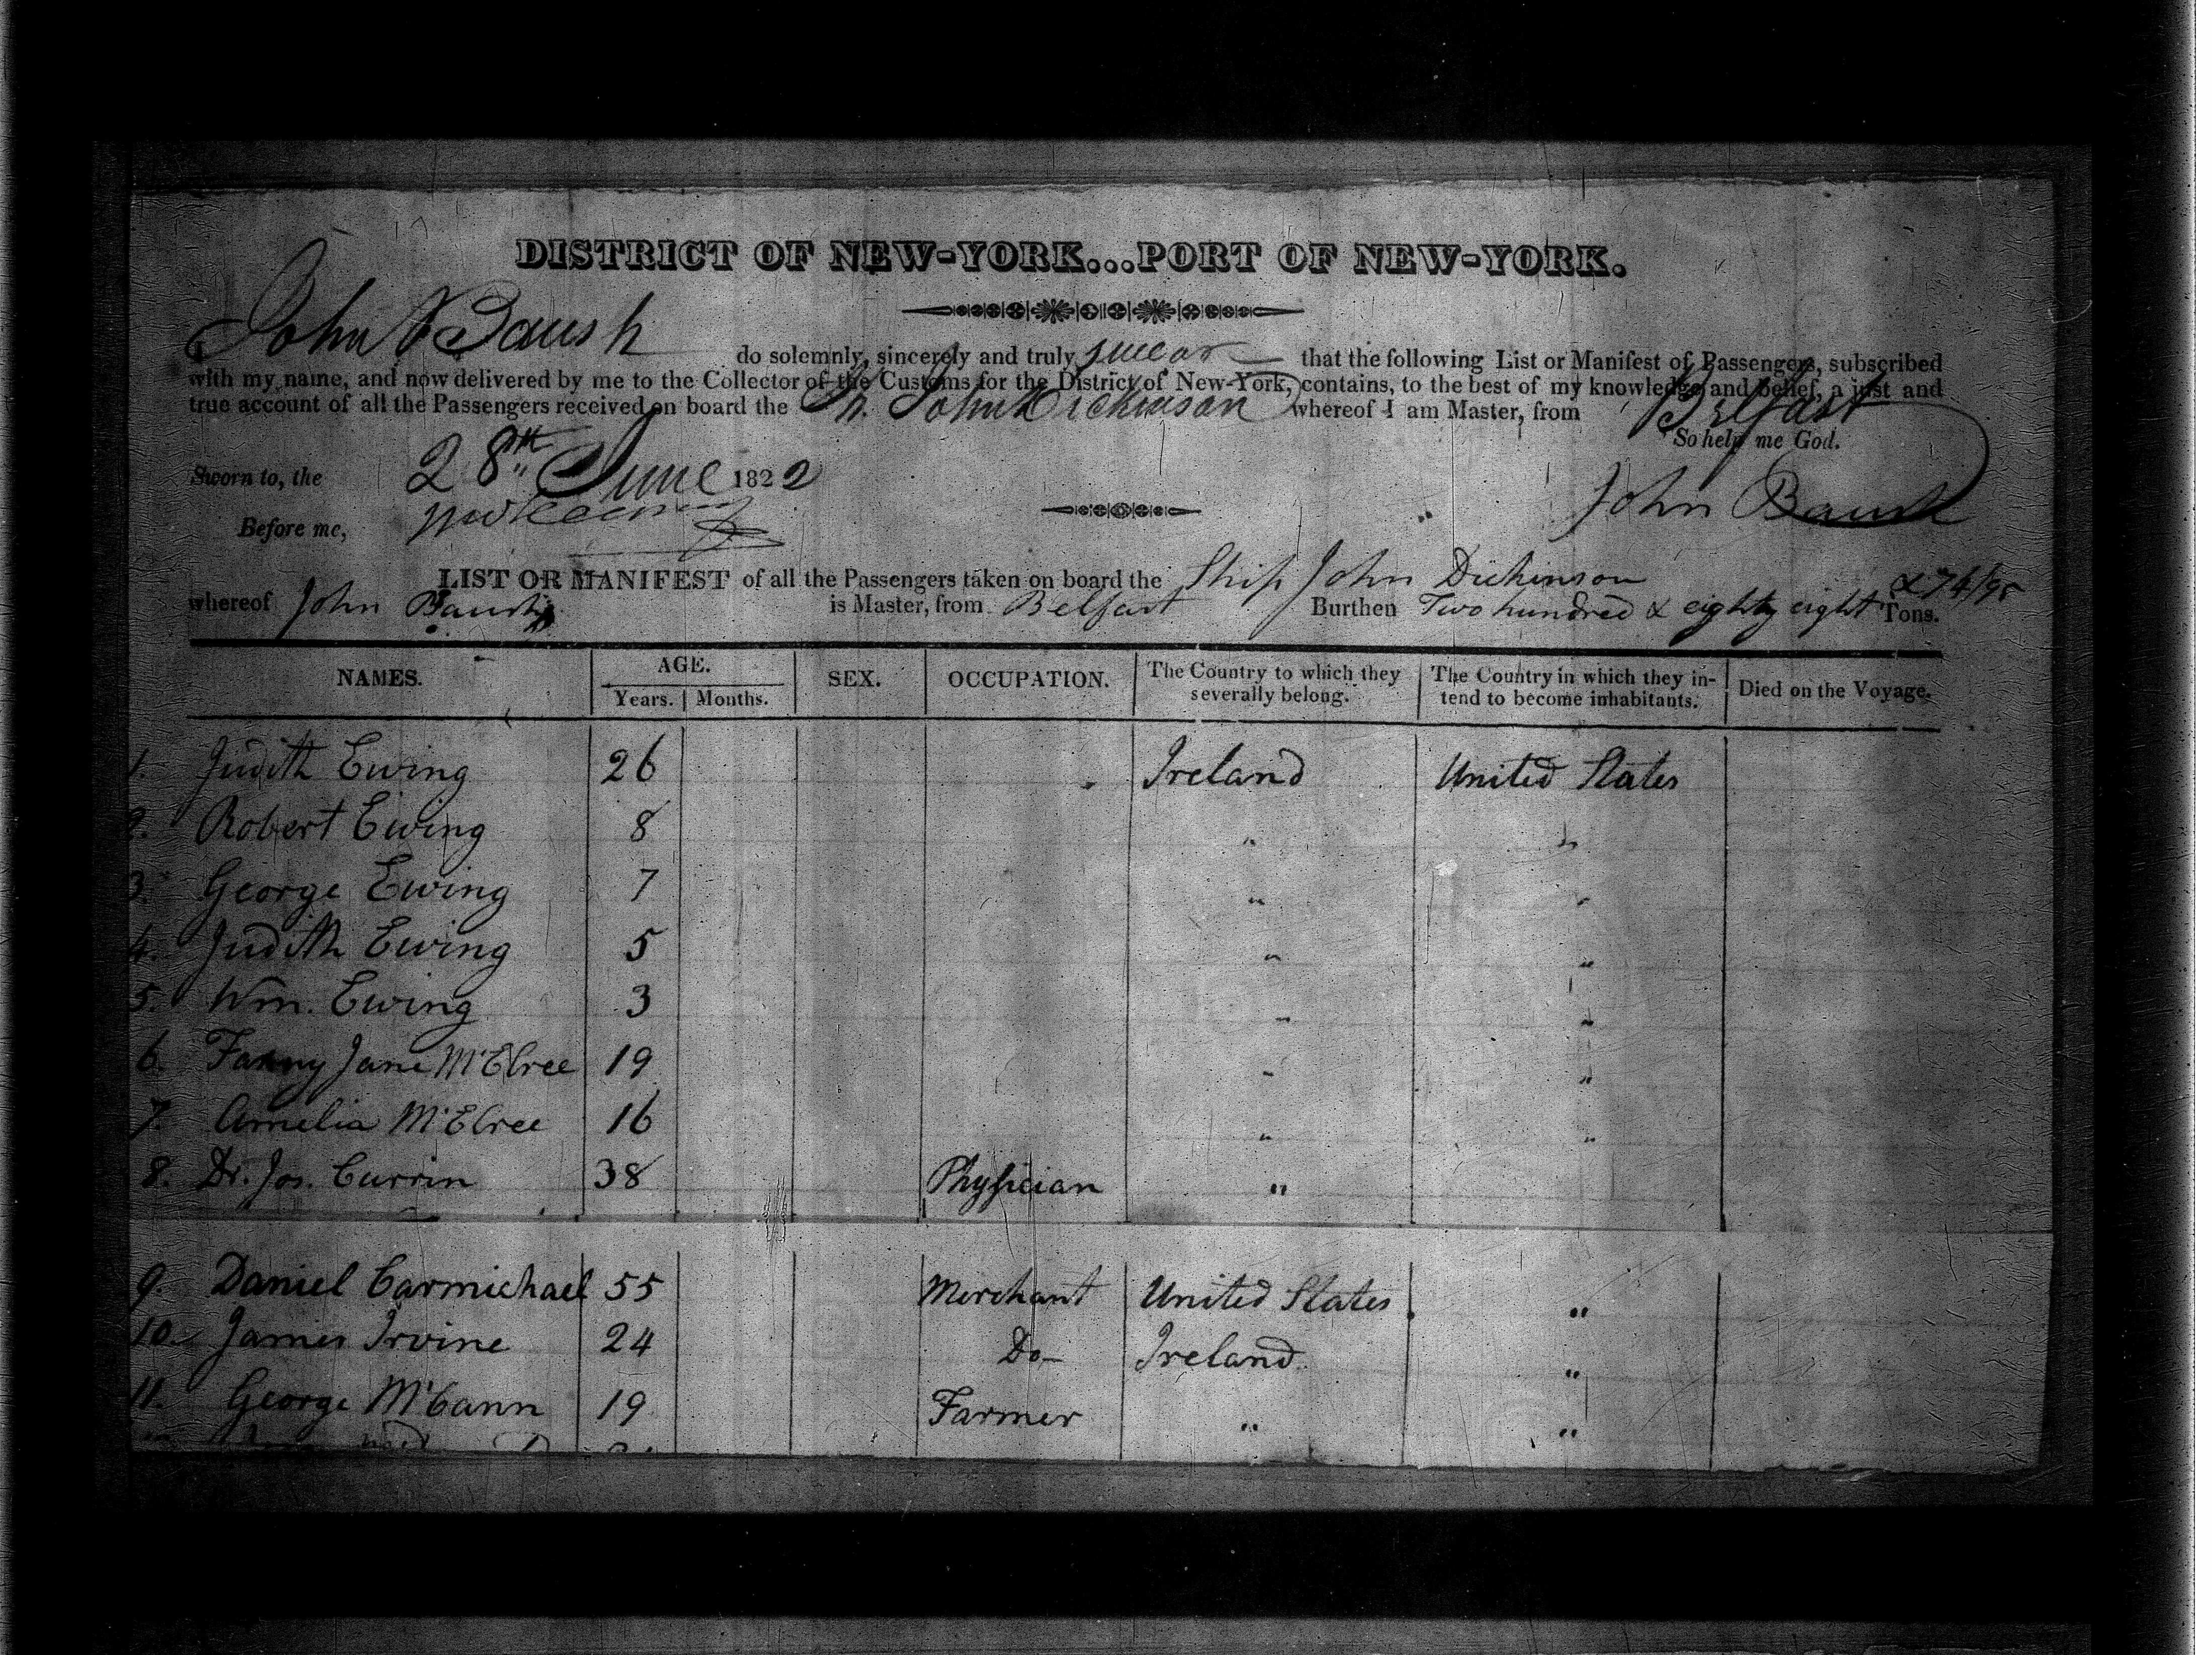 DISTRICT OF NEW-YORK...PORT OF NEW-YORK.
I John Baush do solemnly, sincerely and truly swear that the following List or Manifest of Passengers, subscribed
with my name, and now delivered by me to the Collector of the Customs for the District of New-York, contains, to the best of my knowledge and belief, a just and
true account of all the Passengers received on board the Sh. John Dickinson whereof I am Master, from Belfast
So help me God.
Sworn to, the 28th June 1822
Before me,
John Baush
LIST OR MANIFEST of all the Passengers taken on board the Ship John Dickinson
whereof John Baush is Master, from Belfast Burthen Two hundred & eighty eight & 74/95 Tons.
NAMES. AGE. SEX. OCCUPATION. The Country to which they severally belong. The Country in which they intend to become inhabitants. Died on the Voyage.
Years. Months.
1. Judith Ewing 26 Ireland United States
2. Robert Ewing 8 " "
3. George Ewing 7 " "
4. Judith Ewing 5 " "
5. Wm. Ewing 3 " "
6. Fanny Jane McElree 19 " "
7. Amelia McElree 16 " "
8. Dr. Jos. Currin 38 Physician "
9. Daniel Carmichael 55 Merchant United States "
10. James Irvine 24 Do Ireland "
11. George McCann 19 Farmer " "